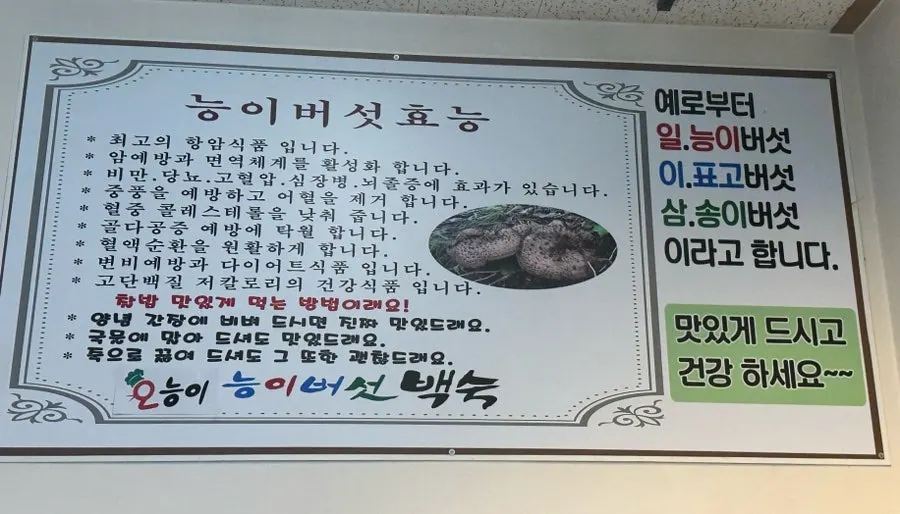 능이버섯효능
* 최고의 항암식품 입니다.
* 암예방과 면역체계를 활성화 합니다.
* 비만.당뇨.고혈압.심장병.뇌졸중에 효과가 있습니다.
* 중풍을 예방하고 어혈을 제거 합니다.
* 혈중 콜레스테롤을 낮춰 줍니다.
* 골다공증 예방에 탁월 합니다.
* 혈액순환을 원활하게 합니다.
* 변비예방과 다이어트식품 입니다.
* 고단백질 저칼로리의 건강식품 입니다.
찰밥 맛있게 먹는 방법이래요!
* 양념 간장에 비벼 드시면 진짜 맛있드래요.
* 국물에 말아 드셔도 맛있드래요.
* 죽으로 끓여 드셔도 그 또한 괜찮드래요.
오능이 능이버섯 백숙
예로부터
일.능이버섯
이.표고버섯
삼.송이버섯
이라고 합니다.
맛있게 드시고
건강 하세요~~